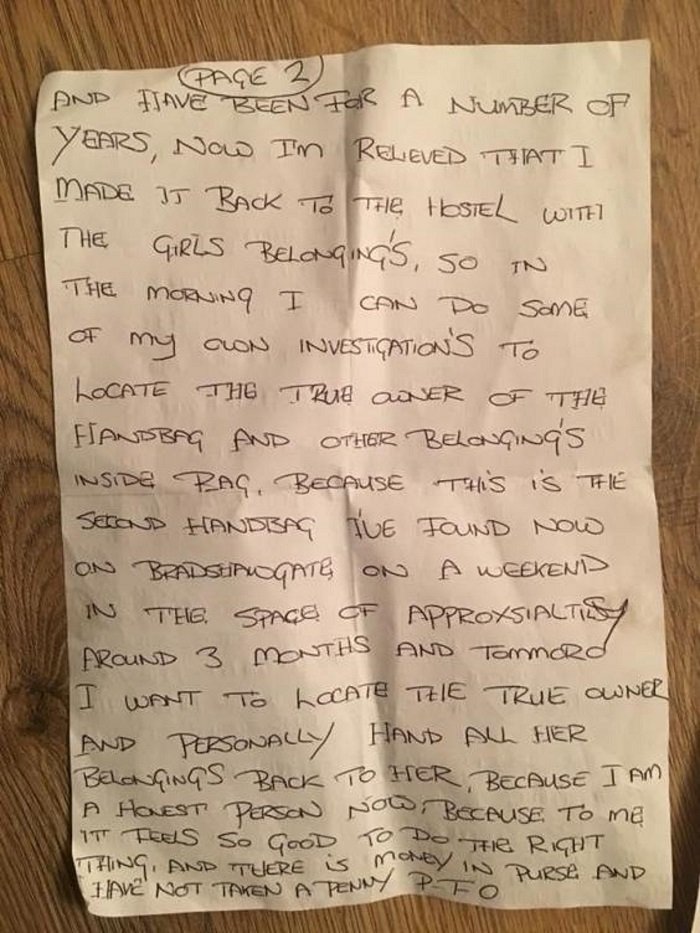 PAGE 2
AND HAVE BEEN FOR A NUMBER OF
YEARS, NOW I'm RELIEVED THAT I
MADE IT BACK TO THE HOSTEL WITH
THE GIRLS BELONGING'S, SO IN
THE MORNING I CAN DO SOME
OF my OWN INVESTIGATION'S TO
LOCATE THE TRUE OWNER OF THE
HANDBAG AND OTHER BELONGING'S
INSIDE BAG, BECAUSE THIS IS THE
SECOND HANDBAG I'VE FOUND NOW
ON BRADSHAWGATE ON A WEEKEND
IN THE SPACE OF APPROXSIALTISY
AROUND 3 MONTHS AND TOMMORO
I WANT TO LOCATE THE TRUE OWNER
AND PERSONALLY HAND ALL HER
BELONGING'S BACK TO HER, BECAUSE I AM
A HONEST PERSON NOW, BECAUSE TO ME
IT FEELS SO GOOD TO DO THE RIGHT
THING, AND THERE IS MONEY IN PURSE AND
I HAVE NOT TAKEN A PENNY P-T-O